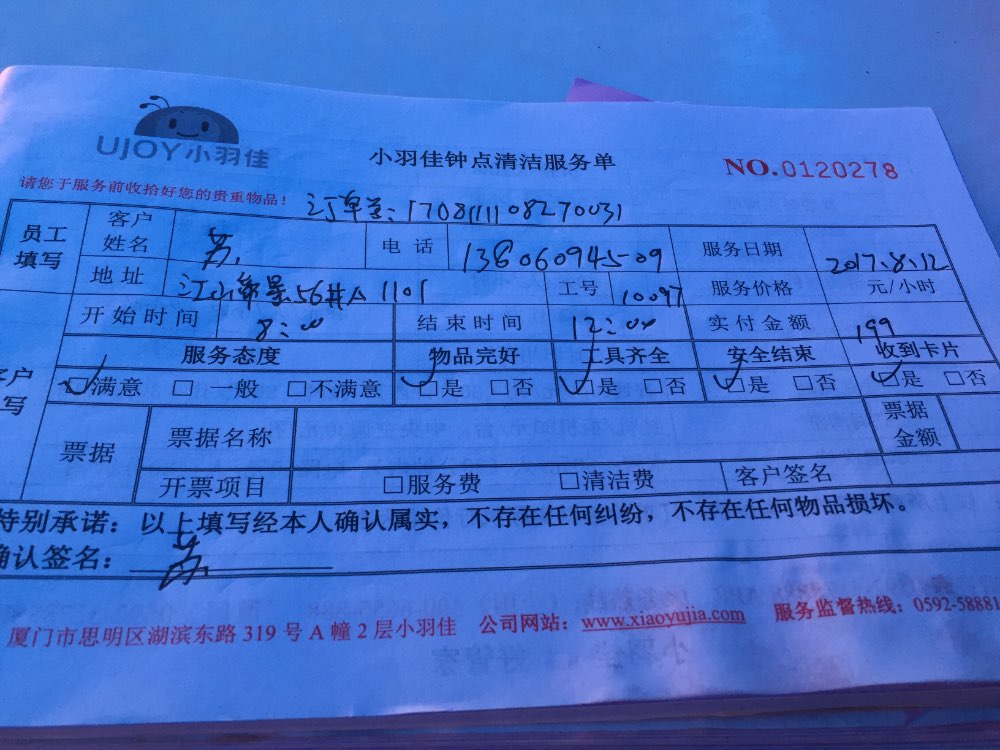 UJOY小羽佳
小羽佳钟点清洁服务单
NO.0120278
请您于服务前收拾好您的贵重物品！
订单号：1708111108270031
员工填写 客户姓名 苏 电话 13806094509 服务日期 2017.8.12
地址 56 1101 工号 10097 服务价格 元/小时
开始时间 8:00 结束时间 12:00 实付金额 199
服务态度 物品完好 工具齐全 安全结束 收到卡片
☑满意 □一般 □不满意 ☑是 □否 ☑是 □否 ☑是 □否 ☑是 □否
票据 票据名称 票据金额
开票项目 □服务费 □清洁费 客户签名
特别承诺：以上填写经本人确认属实，不存在任何纠纷，不存在任何物品损坏。
确认签名：苏
厦门市思明区湖滨东路 319 号 A 幢 2 层小羽佳 公司网站：www.xiaoyujia.com 服务监督热线：0592-58881